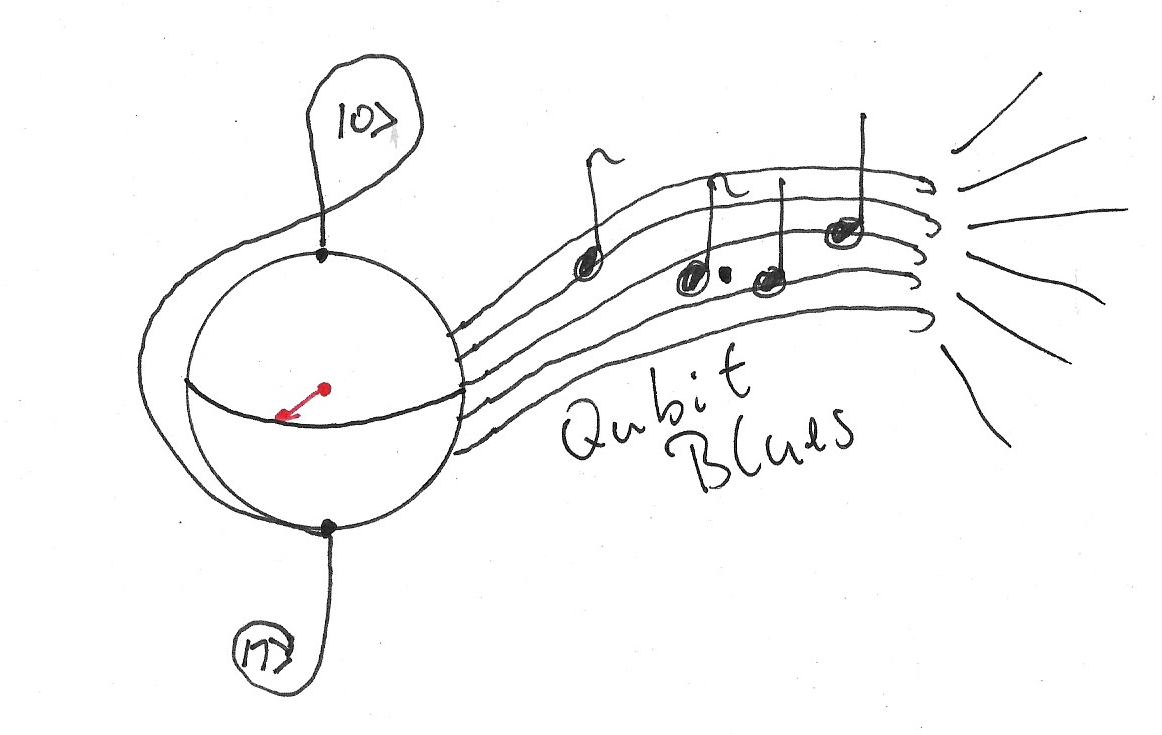 |0>
Qubit
Blues
|1>